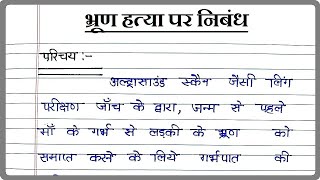 भ्रूण हत्या पर निबंध
परिचय :-
अल्ट्रासाउंड स्कैन जैसी लिंग
परीक्षण जाँच के द्वारा, जन्म से पहले
माँ के गर्भ से लड़की के भ्रूण को
समाप्त करने के लिये गर्भपात की